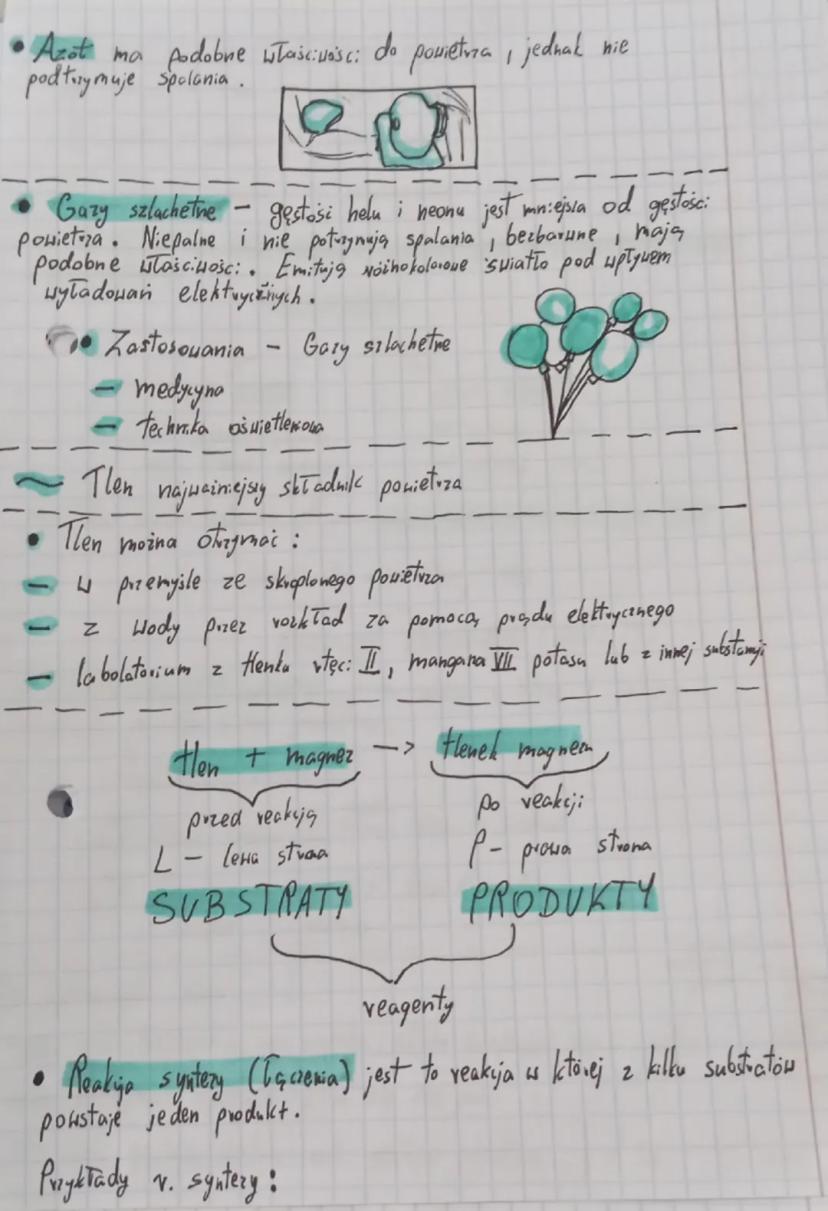 • Azot ma podobne właściwości do powietrza, jednak nie
podtrzymuje spalania.
• Gazy szlachetne – gęstość helu i neonu jest mniejsza od gęstości
powietrza. Niepalne i nie potrzymują spalania, bezbarwne, mają
podobne właściwości. Emitują różnokolorowe światło pod wpływem
wyładowań elektrycznych.
• Zastosowania – Gazy szlachetne
– medycyna
– technika oświetleniowa
~ Tlen najważniejszy składnik powietrza
• Tlen można otrzymać:
– w przemyśle ze skroplonego powietrza
– z wody przez rozkład za pomocą prądu elektrycznego
– labolatorium z tlenku rtęci II, mangana VII potasu lub z innej substancji
tlen + magnez –> tlenek magnezu
przed reakcją po reakcji
L – lewa strona P – prawa strona
SUBSTRATY PRODUKTY
reagenty
• Reakcja syntezy (łączenia) jest to reakcja w której z kilku substratów
powstaje jeden produkt.
Przykłady r. syntezy: